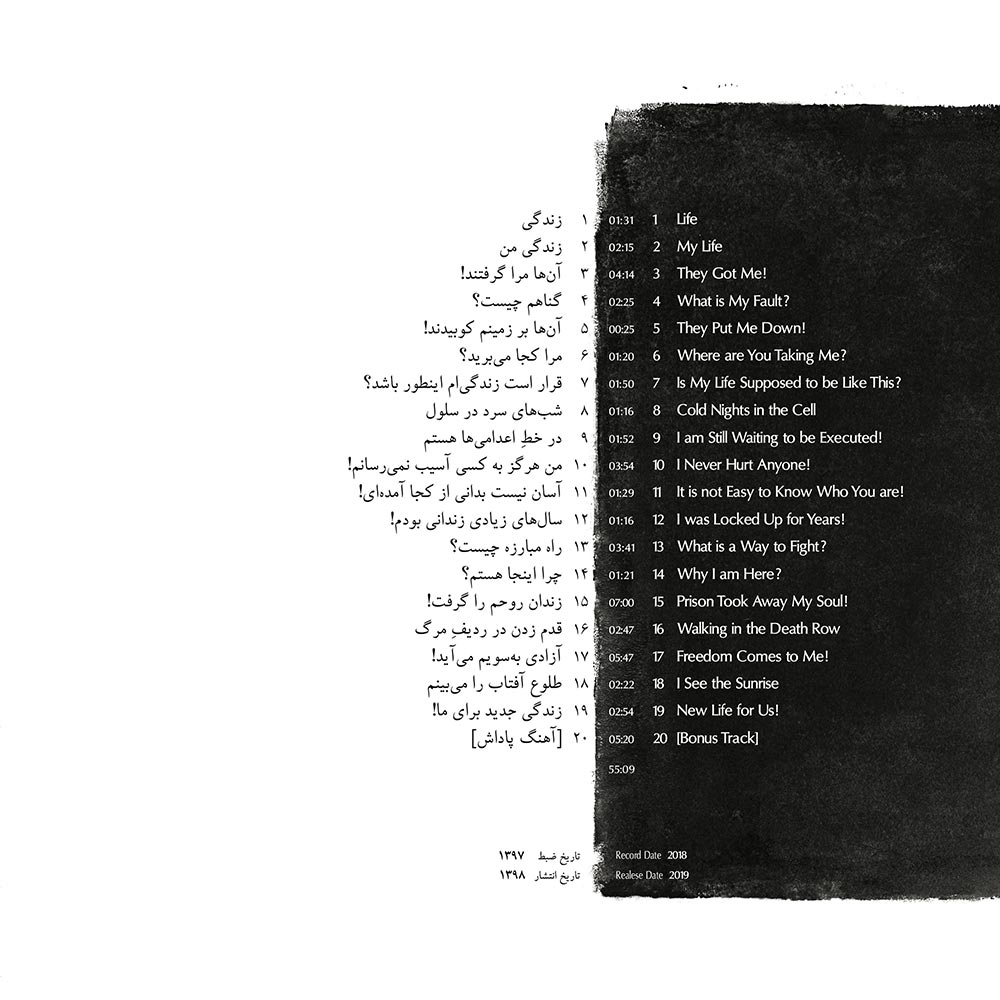 ۱ زندگی
۲ زندگی من
۳ آن‌ها مرا گرفتند!
۴ گناهم چیست؟
۵ آن‌ها بر زمینم کوبیدند!
۶ مرا کجا می‌برید؟
۷ قرار است زندگی‌ام اینطور باشد؟
۸ شب‌های سرد در سلول
۹ در خطِ اعدامی‌ها هستم
۱۰ من هرگز به کسی آسیب نمی‌رسانم!
۱۱ آسان نیست بدانی از کجا آمده‌ای!
۱۲ سال‌های زیادی زندانی بودم!
۱۳ راه مبارزه چیست؟
۱۴ چرا اینجا هستم؟
۱۵ زندان روحم را گرفت!
۱۶ قدم زدن در ردیفِ مرگ
۱۷ آزادی به‌سویم می‌آید!
۱۸ طلوع آفتاب را می‌بینم
۱۹ زندگی جدید برای ما!
۲۰ [آهنگ پاداش]
تاریخ ضبط ۱۳۹۷
تاریخ انتشار ۱۳۹۸
01:31 1 Life
02:15 2 My Life
04:14 3 They Got Me!
02:25 4 What is My Fault?
00:25 5 They Put Me Down!
01:20 6 Where are You Taking Me?
01:50 7 Is My Life Supposed to be Like This?
01:16 8 Cold Nights in the Cell
01:52 9 I am Still Waiting to be Executed!
03:54 10 I Never Hurt Anyone!
01:29 11 It is not Easy to Know Who You are!
01:16 12 I was Locked Up for Years!
03:41 13 What is a Way to Fight?
01:21 14 Why I am Here?
07:00 15 Prison Took Away My Soul!
02:47 16 Walking in the Death Row
05:47 17 Freedom Comes to Me!
02:22 18 I See the Sunrise
02:54 19 New Life for Us!
05:20 20 [Bonus Track]
55:09
Record Date 2018
Realese Date 2019